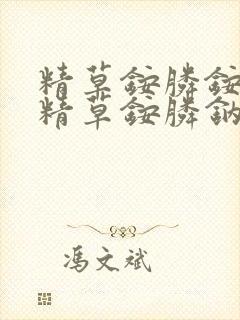 精草銨膦銨
精草銨膦鈉
馮文斌